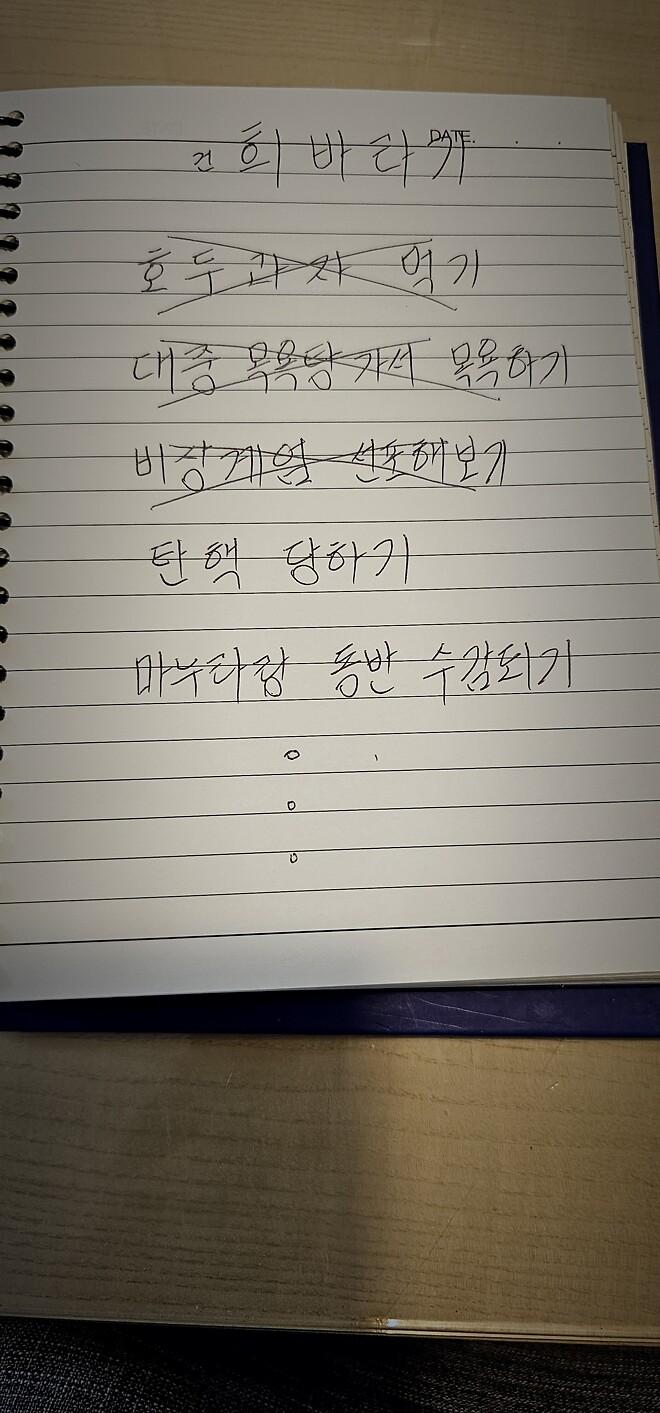 건희바라기
DATE. . .
호두과자 먹기
대중 목욕탕가서 목욕하기
비상계엄 선포해보기
탄핵 당하기
마누라랑 동반 수감되기